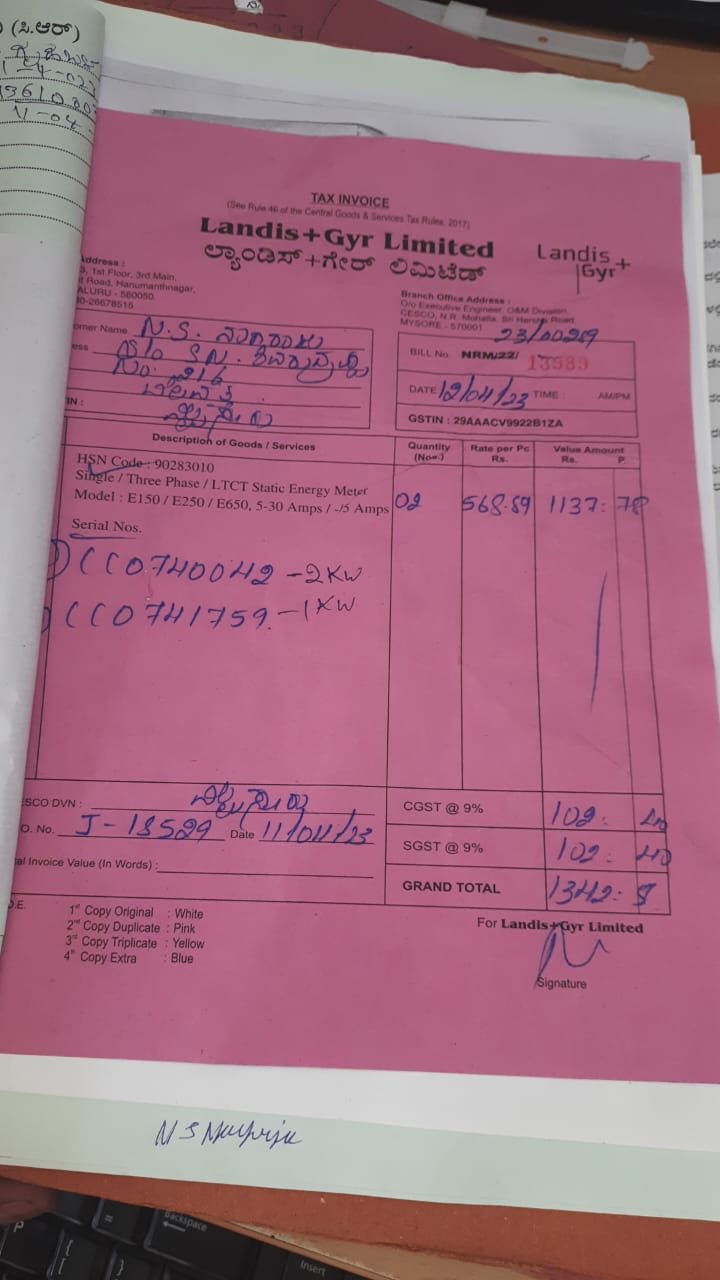 (ಸಿ.ಆರ್)
TAX INVOICE
(See Rule 46 of the Central Goods & Services Tax Rules, 2017)
Landis+Gyr Limited
ಲ್ಯಾಂಡಿಸ್+ಗೇರ್ ಲಿಮಿಟೆಡ್
Landis+
Gyr
Address :
3, 1st Floor, 3rd Main,
Road, Hanumanthnagar,
ALURU - 560050.
26678516
Branch Office Address :
O/o Executive Engineer, O&M Division,
CESCO, N.R. Mohalla, Sri Harsha Road,
MYSORE - 570001
omer Name N.S. ನಾಗರಾಜು
ess S/o S.N.
No. 216
IN :
23/00269
BILL No. NRM/22/ 13589
DATE 12/04/23 TIME : AM/PM
GSTIN : 29AAACV9922B1ZA
Description of Goods / Services
Quantity (Nos.)
Rate per Pc Rs.
Value Amount Rs. P.
HSN Code : 90283010
Single / Three Phase / LTCT Static Energy Meter
Model : E150 / E250 / E650, 5-30 Amps / -/5 Amps
02 568.89 1137: 78
Serial Nos.
CC0740042 - 2KW
CC0741759 - 1KW
ESCO DVN :
O. No. J-18529 Date 11/04/23
al Invoice Value (In Words) :
CGST @ 9% 102: 40
SGST @ 9% 102: 40
GRAND TOTAL 1342:
O.E.
1st Copy Original : White
2nd Copy Duplicate : Pink
3rd Copy Triplicate : Yellow
4th Copy Extra : Blue
For Landis+Gyr Limited
Signature
Backspace
Insert